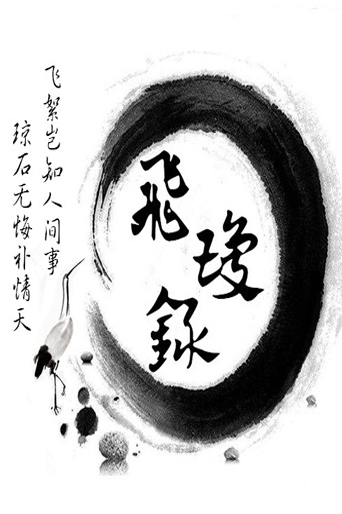 飛瓊錄
飞絮岂知人间事
琼石无悔补情天